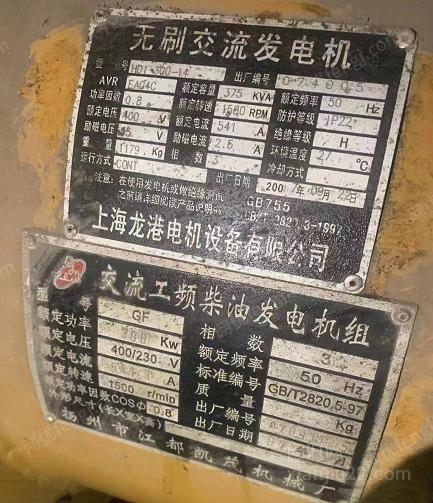 无刷交流发电机
型号 HDI-300-14 出厂编号 074005
AVR EA04C 额定容量 375 KVA 额定频率 50 Hz
功率因数 0.8 额定转速 1500 RPM 防护等级 IP22
额定电压 400 V 额定电流 541 A 绝缘等级 H
励磁电压 45 V 励磁电流 2.5 A 环境温度 27 ℃
重量 1179 Kg 相数 3 冷却方式
运行方式 CONT 出厂日期 2007年09月22日
注意：在使用发电机或做绝缘测试 GB755
之前请详细阅读产品说明书 GB/T 2820.3-1997
上海龙港电机设备有限公司
交流工频柴油发电机组
型号 GF 相数 3
额定功率 300 Kw 额定频率 50 Hz
额定电压 400/230 V 标准编号 GB/T2820.5-97
额定电流 A 质量 Kg
额定转速 1500 r/min 出厂编号
额定功率因数COSΦ 0.8 出厂日期 07年 月
外形尺寸(长X宽X高)
扬州市江都凯茂机械厂